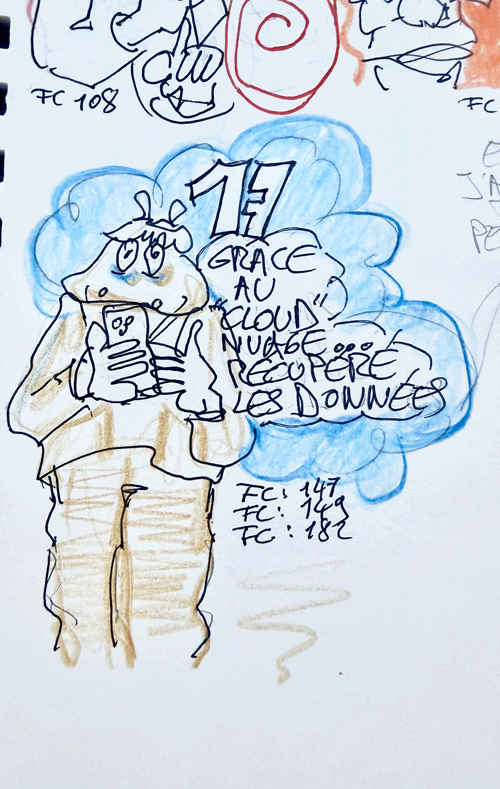 FC 108
FC
17
GRACE
AU
"CLOUD"
NUAGE...
RÉCUPÈRE
LES DONNÉES
FC: 147
FC: 149
FC: 182